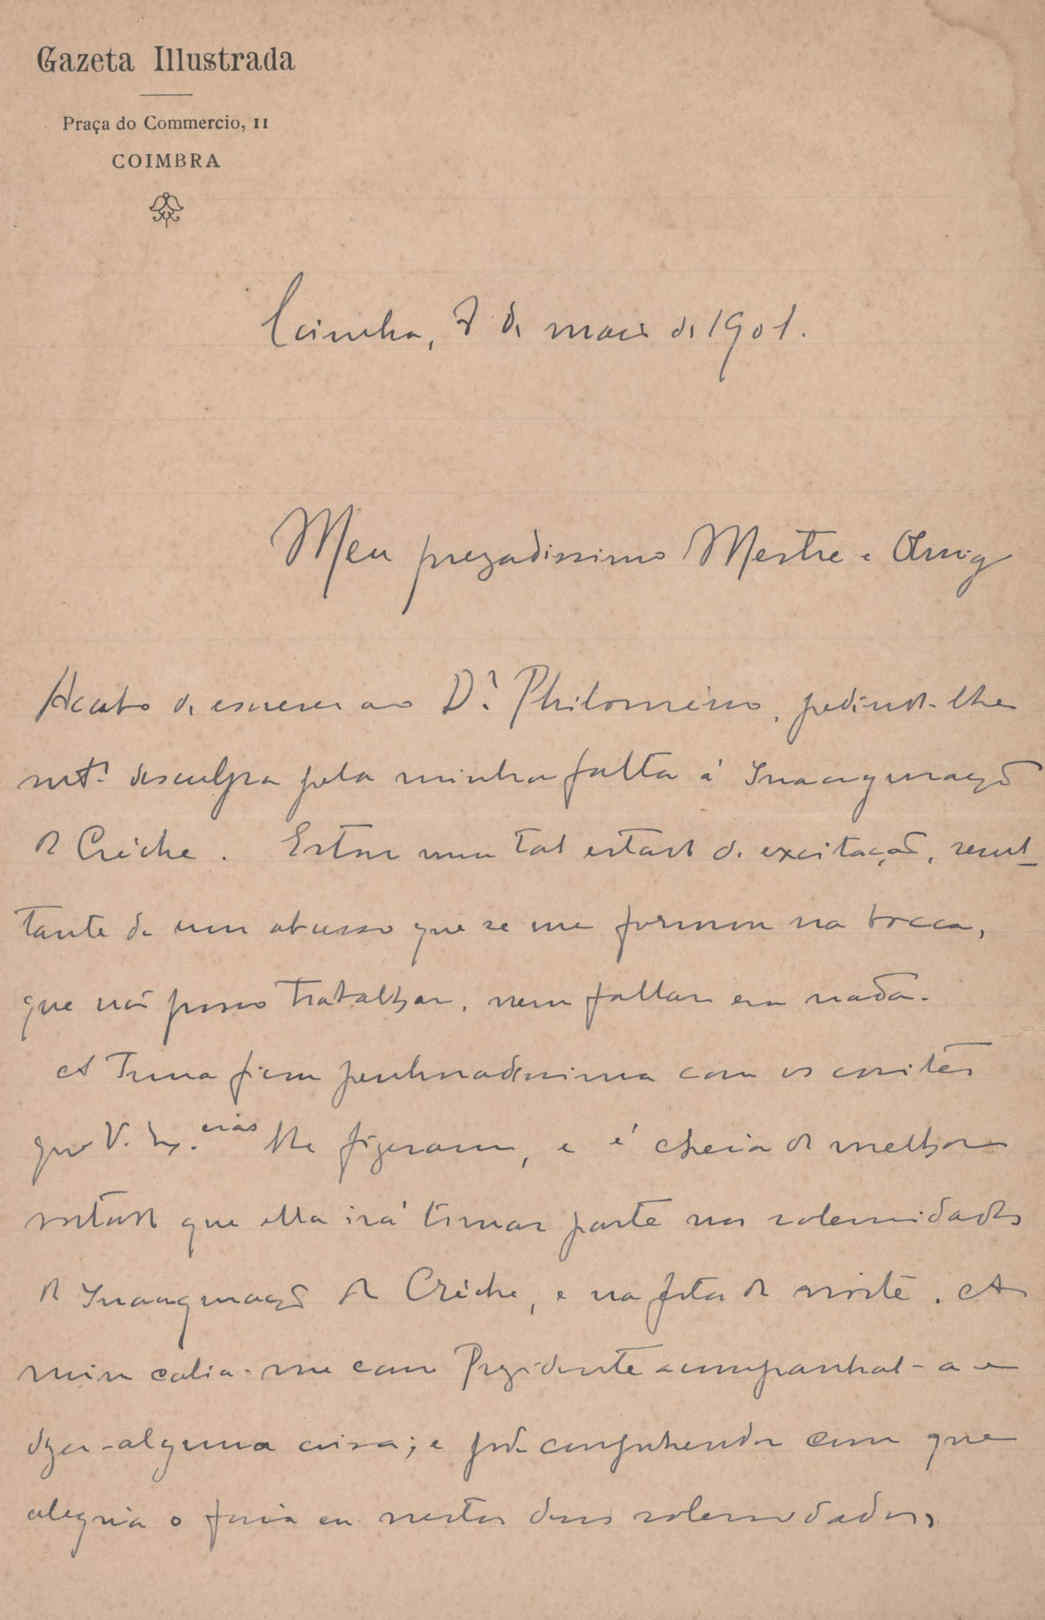 Gazeta Illustrada
Praça do Commercio, 11
COIMBRA
Coimbra, 7 de maio de 1901.
Meu prezadissimo Mestre e Amigo
Acabo de escrever ao Dr. Philomeno, pedindo-lhe
mta. desculpa pela minha falta á Inauguração
da Créche. Estou num tal estado de excitação, resul-
tante de um abcesso que se me formou na bocca,
que não posso trabalhar, nem fallar em nada.
A Tuna ficou penhoradissima com os convites
que V. Ex.cias lhe fizeram, e é cheia da melhor
vontade que ella irá tomar parte nas solemnidades
da Inauguração da Créche, e na festa da noite. A
mim cabia-me como Prezidente acompanhal-a e
dizer-alguma coisa; e pode comprehender com que
alegria o faria eu nestas duas solemnidades,